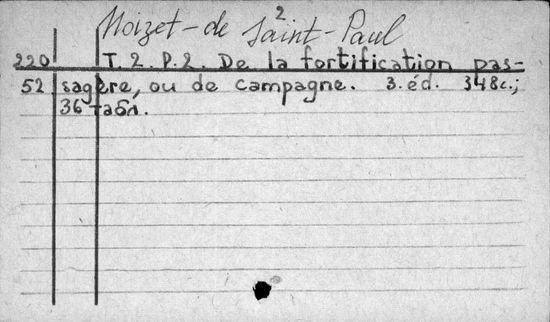 Noizet-de Saint-Paul
2
220 T. 2. P. 2. De la fortification pas-
52 sagère, ou de campagne. 3. éd. 348с.;
36 табл.